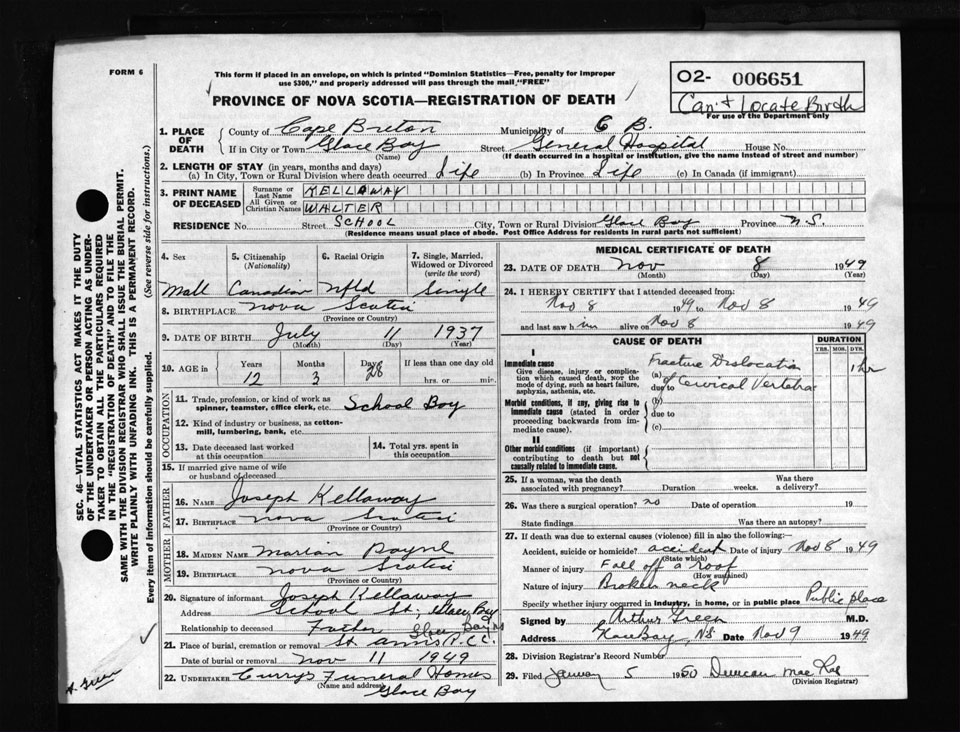 FORM 6
This form if placed in an envelope, on which is printed "Dominion Statistics—Free, penalty for improper
use $300," and properly addressed will pass through the mail "FREE"
PROVINCE OF NOVA SCOTIA—REGISTRATION OF DEATH
02- 006651
Can't Locate Birth
For use of the Department only
1. PLACE OF DEATH County of Cape Breton Municipality of C B.
If in City or Town Glace Bay Street General Hospital House No.
(Name) (If death occurred in a hospital or institution, give the name instead of street and number)
2. LENGTH OF STAY (in years, months and days)
(a) In City, Town or Rural Division where death occurred Life (b) In Province Life (c) In Canada (if immigrant)
3. PRINT NAME OF DECEASED Surname or Last Name KELLAWAY
All Given or Christian Names WALTER
RESIDENCE No. Street SCHOOL City, Town or Rural Division Glace Bay Province N.S.
(Residence means usual place of abode. Post Office Address for residents in rural parts not sufficient)
4. Sex 5. Citizenship (Nationality) 6. Racial Origin 7. Single, Married, Widowed or Divorced (write the word)
Mall Canadian Nfld Single
8. BIRTHPLACE Nova Scotia
(Province or Country)
9. DATE OF BIRTH July 11 1937
(Month) (Day) (Year)
10. AGE in Years Months Days If less than one day old
12 3 28 hrs. or min.
OCCUPATION
11. Trade, profession, or kind of work as spinner, teamster, office clerk, etc. School Boy
12. Kind of industry or business, as cotton-mill, lumbering, bank, etc.
13. Date deceased last worked at this occupation
14. Total yrs. spent in this occupation
15. If married give name of wife or husband of deceased
FATHER
16. NAME Joseph Kellaway
17. BIRTHPLACE Nova Scotia
(Province or Country)
MOTHER
18. MAIDEN NAME Marian Payne
19. BIRTHPLACE Nova Scotia
(Province or Country)
20. Signature of informant Joseph Kellaway
Address School St. Glace Bay
Relationship to deceased Father
21. Place of burial, cremation or removal St. Anns R.C.C. Glace Bay
Date of burial or removal Nov 11 1949
22. UNDERTAKER Curry's Funeral Homes
(Name and address) Glace Bay
MEDICAL CERTIFICATE OF DEATH
23. DATE OF DEATH Nov 8 1949
(Month) (Day) (Year)
24. I HEREBY CERTIFY that I attended deceased from:
Nov 8 1949 Nov 8 1949
and last saw h im alive on Nov 8 1949
CAUSE OF DEATH
DURATION
YRS. MOS. DYS.
I
Immediate cause
Give disease, injury or complication which caused death, NOT the mode of dying, such as heart failure, asphyxia, asthenia, etc.
(a) Fracture Dislocation 1 hr
due to of Cervical Vertebrae
Morbid conditions, if any, giving rise to immediate cause (stated in order proceeding backwards from immediate cause).
(b)
due to
(c)
II
Other morbid conditions (if important) contributing to death but not causally related to immediate cause.
25. If a woman, was the death associated with pregnancy? Duration weeks. Was there a delivery?
26. Was there a surgical operation? no Date of operation 19
State findings Was there an autopsy?
27. If death was due to external causes (violence) fill in also the following:
Accident, suicide or homicide? accident Date of injury Nov 8 1949
(State which)
Manner of injury Fall off a roof
(How sustained)
Nature of injury Broken neck
Specify whether injury occurred in industry, in home, or in public place Public place
Signed by Arthur Green M.D.
Address Glace Bay, NS Date Nov 9 1949
28. Division Registrar's Record Number
29. Filed January 5 1950 Duncan MacRae
(Division Registrar)
SEC. 46—VITAL STATISTICS ACT MAKES IT THE DUTY
OF THE UNDERTAKER OR PERSON ACTING AS UNDER-
TAKER TO OBTAIN ALL THE PARTICULARS REQUIRED
IN THE "REGISTRATION OF DEATH" AND TO FILE THE
SAME WITH THE DIVISION REGISTRAR WHO SHALL ISSUE THE BURIAL PERMIT.
WRITE PLAINLY WITH UNFADING INK. THIS IS A PERMANENT RECORD.
Every item of information should be carefully supplied. (See reverse side for instructions.)